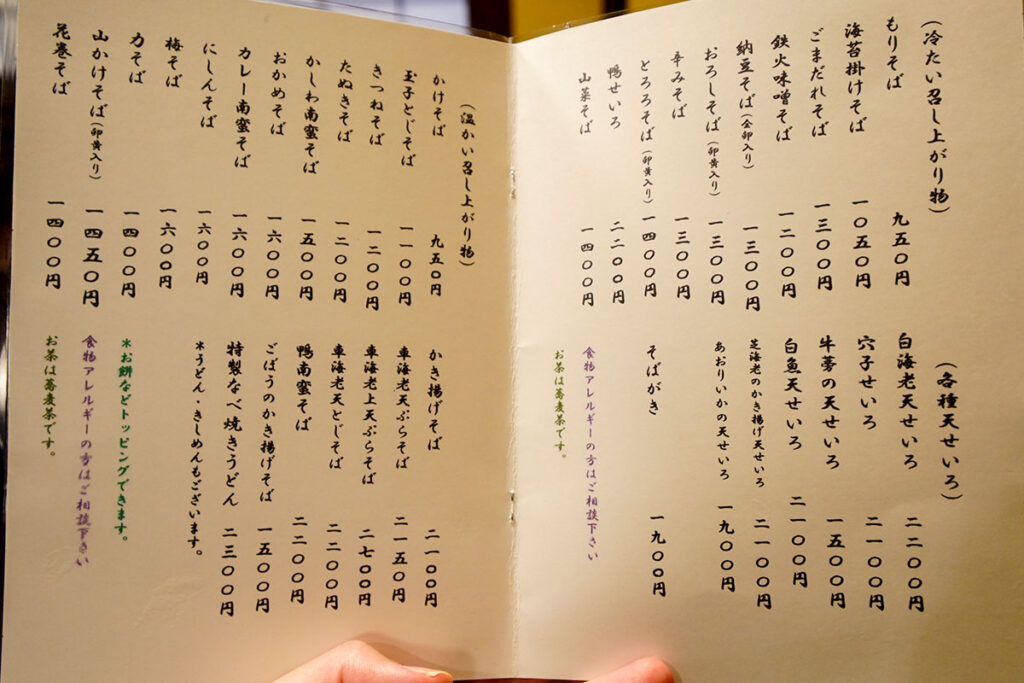 （冷たい召し上がり物）
もりそば 九五〇円
海苔掛けそば 一〇五〇円
ごまだれそば 一三〇〇円
鉄火味噌そば 一二〇〇円
納豆そば（全卵入り） 一三〇〇円
おろしそば（卵黄入り） 一三〇〇円
辛みそば 一三〇〇円
とろろそば（卵黄入り） 一四〇〇円
鴨せいろ 二二〇〇円
山菜そば 一四〇〇円
（各種天せいろ）
白海老天せいろ 二二〇〇円
穴子せいろ 二一〇〇円
牛蒡の天せいろ 一五〇〇円
白魚天せいろ 二一〇〇円
芝海老のかき揚げ天せいろ 二一〇〇円
あおりいかの天せいろ 一九〇〇円
そばがき 一九〇〇円
食物アレルギーの方はご相談下さい
お茶は蕎麦茶です。
（温かい召し上がり物）
かけそば 九五〇円
玉子とじそば 一一〇〇円
きつねそば 一二〇〇円
たぬきそば 一二〇〇円
かしわ南蛮そば 一五〇〇円
おかめそば 一六〇〇円
カレー南蛮そば 一六〇〇円
にしんそば 一六〇〇円
梅そば 一六〇〇円
力そば 一四〇〇円
山かけそば（卵黄入り） 一四五〇円
花巻そば 一四〇〇円
かき揚げそば 二一〇〇円
車海老天ぷらそば 二一五〇円
車海老上天ぷらそば 二七〇〇円
車海老天とじそば 二二〇〇円
鴨南蛮そば 二二〇〇円
ごぼうのかき揚げそば 一五〇〇円
特製なべ焼きうどん 二三〇〇円
＊うどん・きしめんもございます。
＊お餅などトッピングできます。
食物アレルギーの方はご相談下さい
お茶は蕎麦茶です。